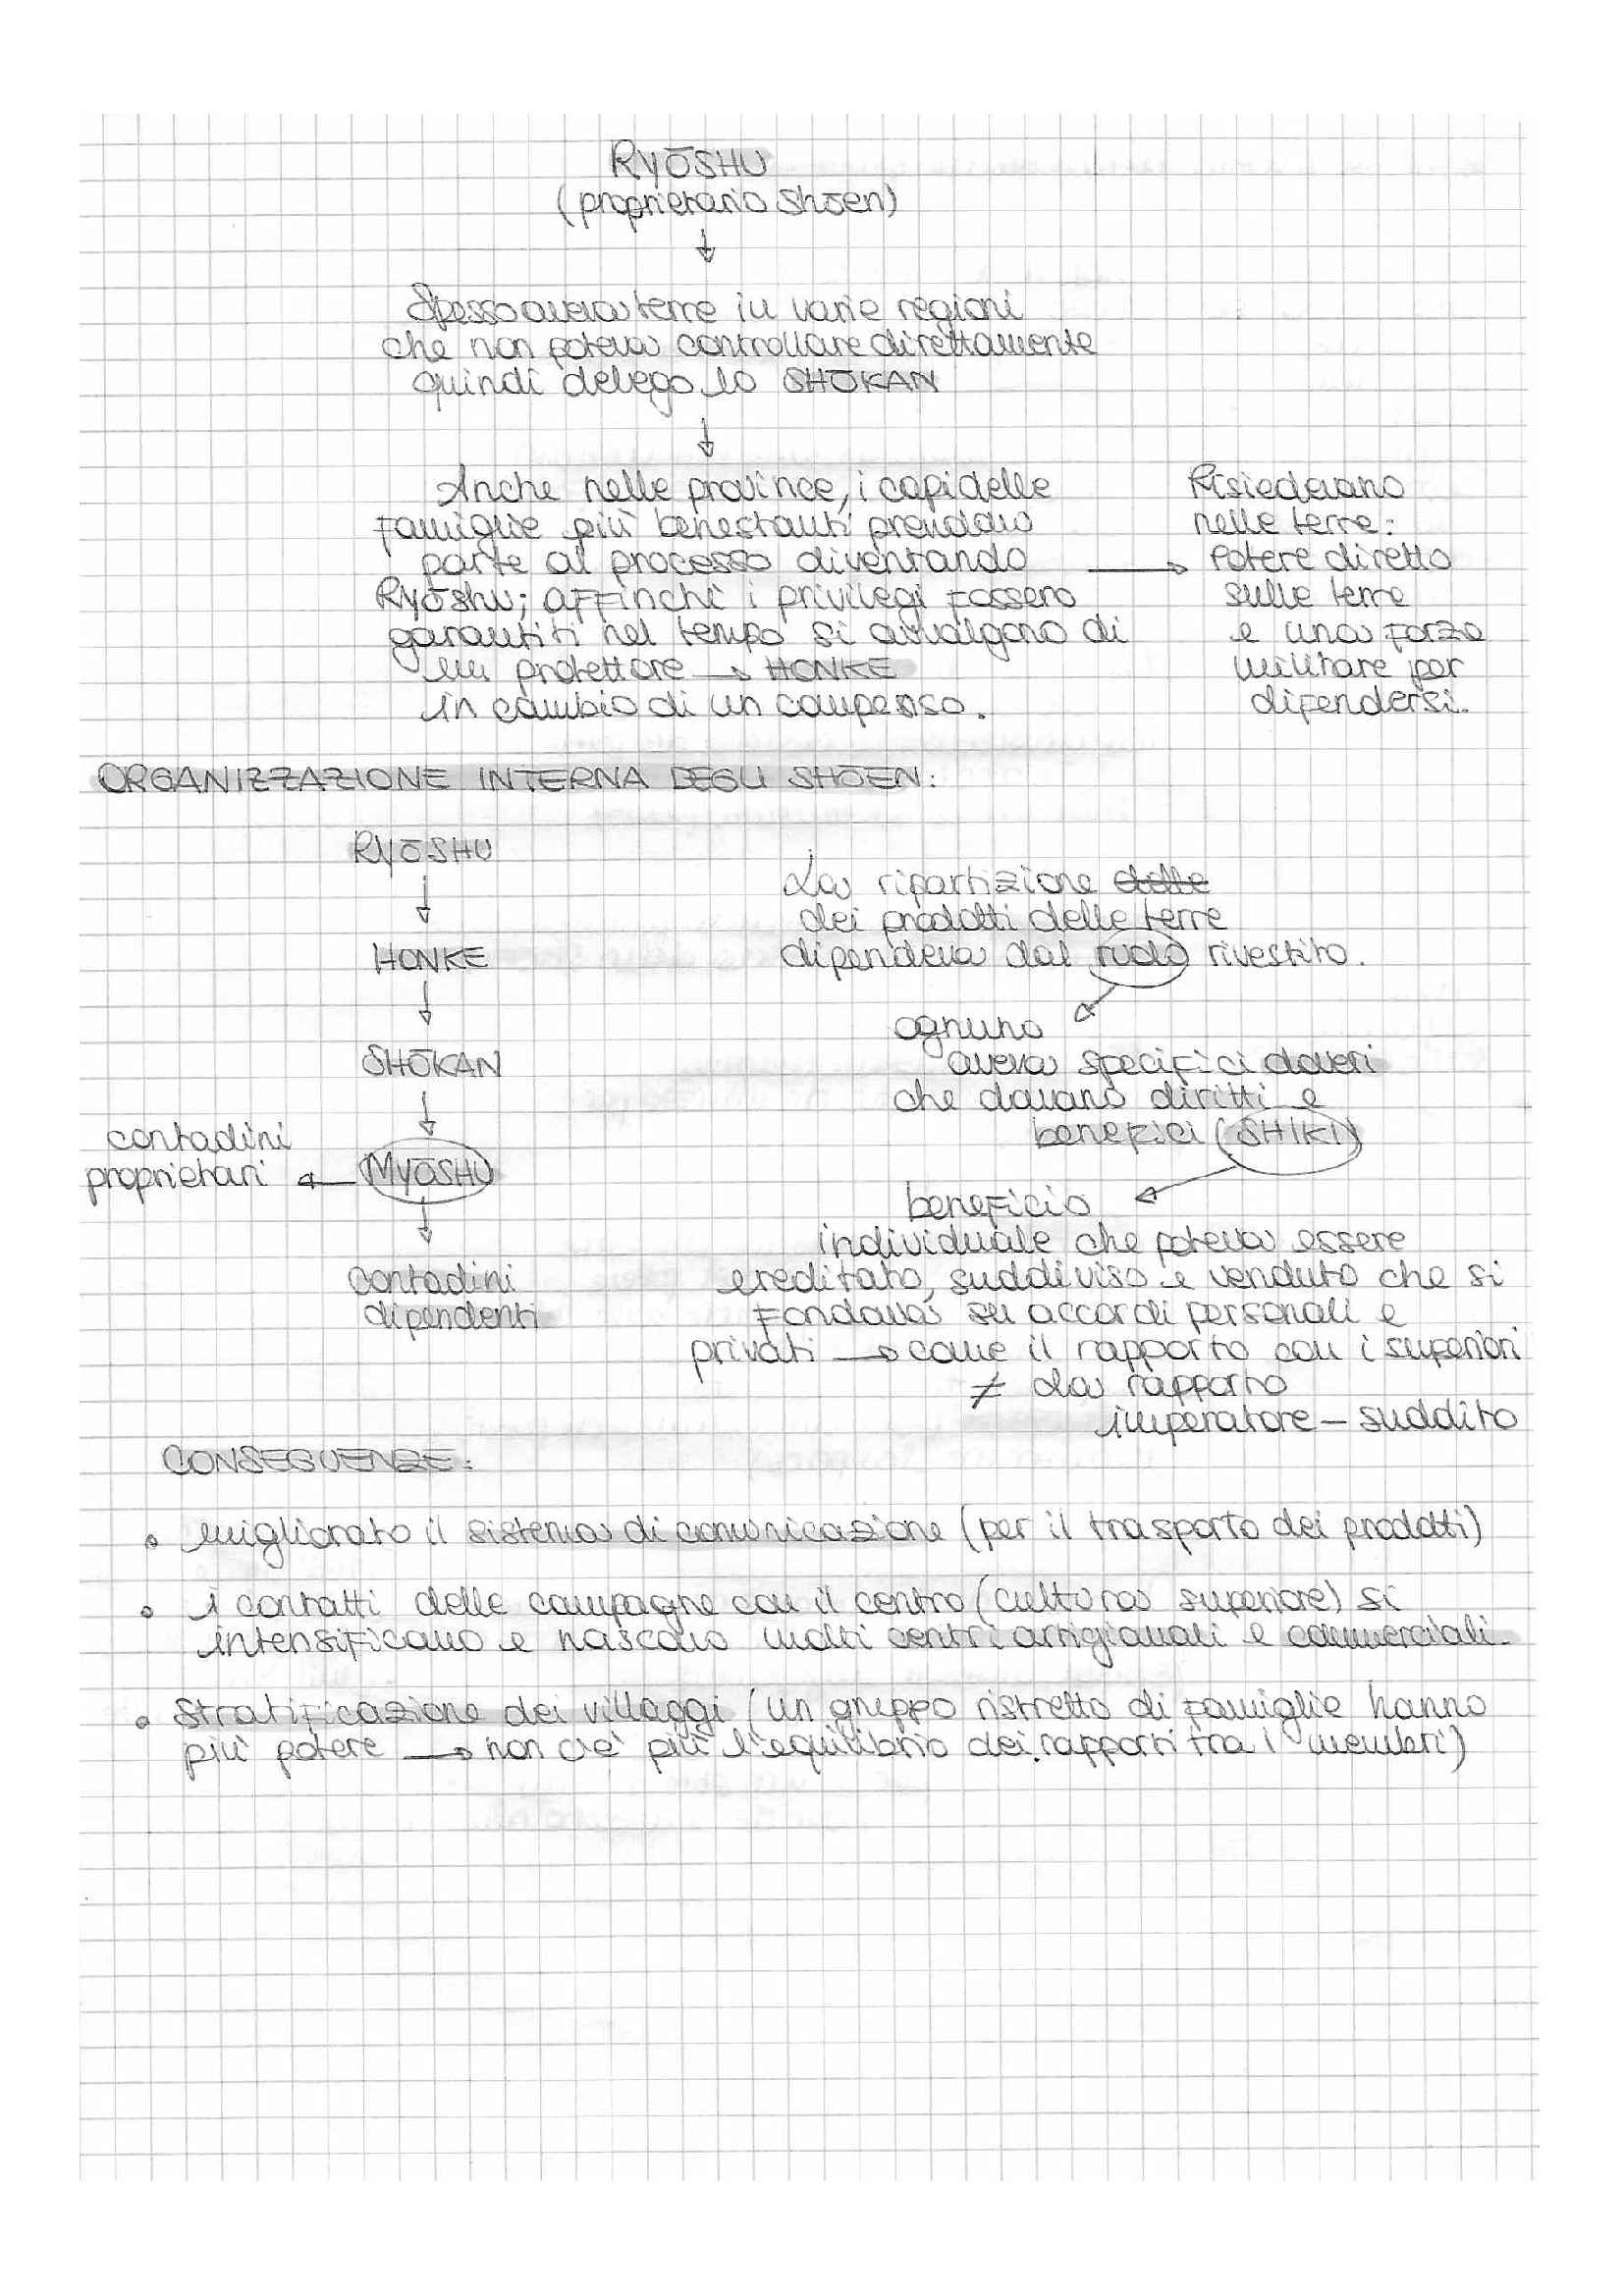 RYŌSHU
(proprietario Shōen)
↓
Spesso aveva terre in varie regioni
che non poteva controllare direttamente
quindi delega lo SHŌKAN
↓
Anche nelle province, i capi delle
famiglie più benestanti prendono
parte al processo diventando →
Ryōshu; affinché i privilegi fossero
garantiti nel tempo si avvalgono di
un protettore → HONKE
in cambio di un compenso.
Risiedevano
nelle terre:
potere diretto
sulle terre
e una forza
militare per
difendersi.
ORGANIZZAZIONE INTERNA DEGLI SHŌEN:
RYŌSHU
↓
HONKE
↓
SHŌKAN
↓
contadini
proprietari ← MYŌSHU
↓
contadini
dipendenti
La ripartizione delle
dei prodotti delle terre
dipendeva dal ruolo rivestito.
ognuno
aveva specifici doveri
che davano diritti e
benefici (SHIKI)
beneficio
individuale che poteva essere
ereditato, suddiviso e venduto che si
fondava su accordi personali e
privati → come il rapporto con i superiori
≠ da rapporto
imperatore – suddito
CONSEGUENZE:
• migliorato il sistema di comunicazione (per il trasporto dei prodotti)
• i contatti delle campagne con il centro (cultura superiore) si
intensificano e nascono molti centri artigianali e commerciali.
• Stratificazione dei villaggi (un gruppo ristretto di famiglie hanno
più potere → non c'è più l'equilibrio dei rapporti tra i membri)